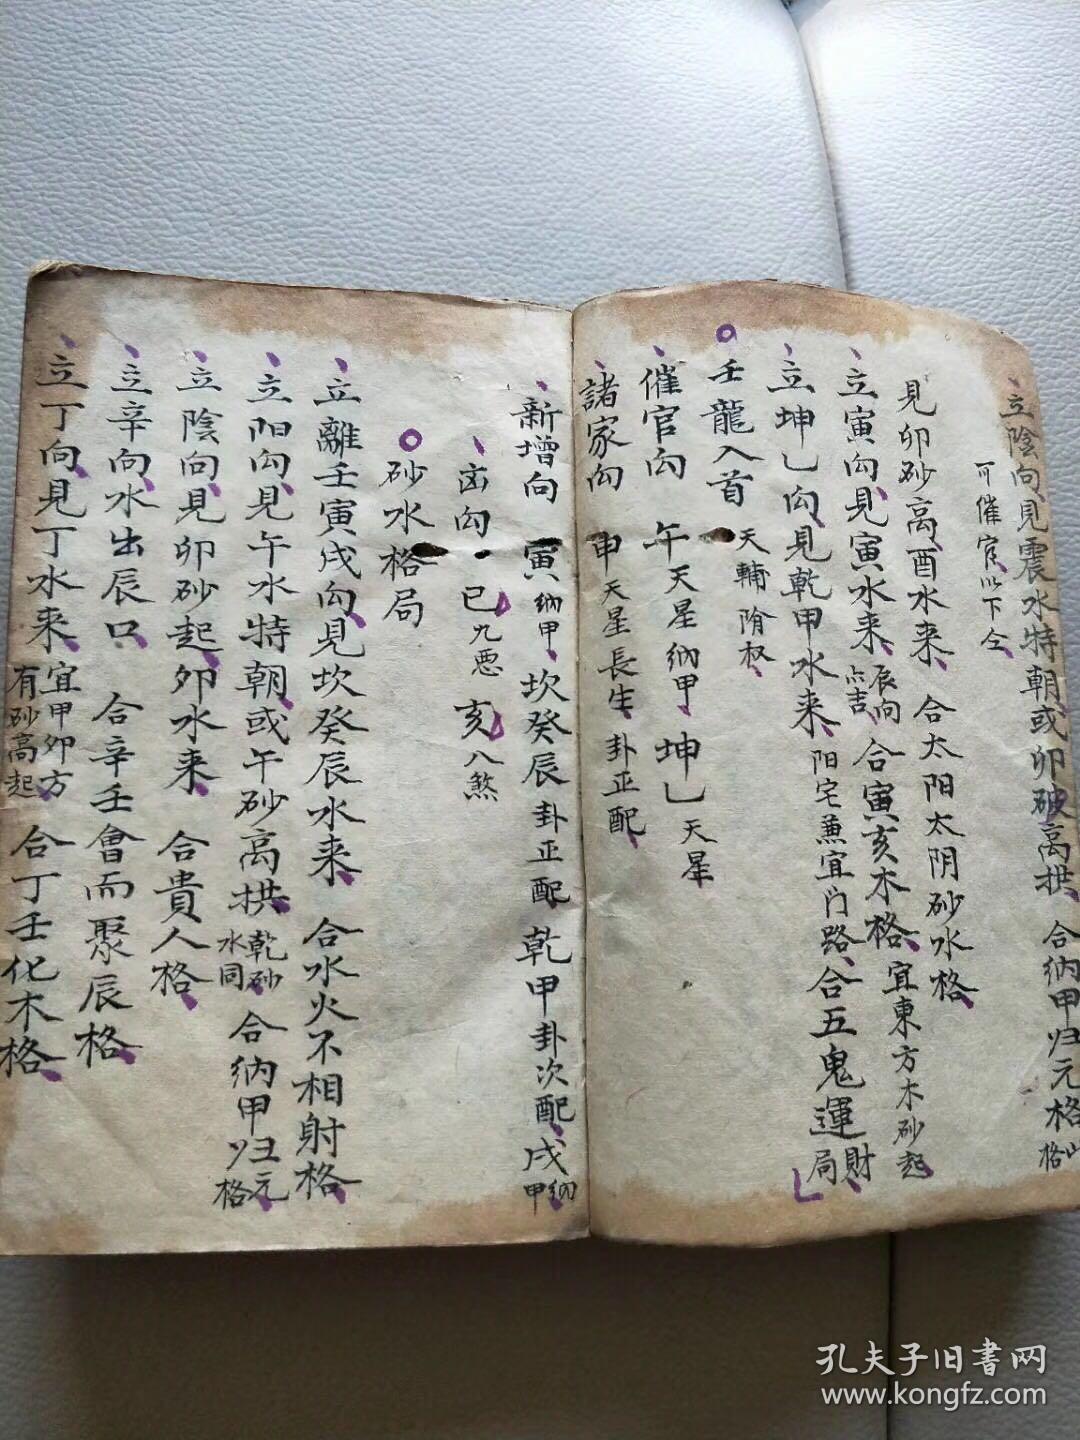 立陰向見震水特朝或卯破高拱 合納甲归元格
可催官以下仝
見卯砂高酉水来 合太阳太阴砂水格
立寅向見寅水来 辰向亦吉 合寅亥木格 宜東方木砂起
立坤乚向見乾甲水来 阳宅兼宜门路 合五鬼運財局
壬龍入首 天輔 陰权
催官向 午 天星納甲 坤乚 天星
諸家向 申 天星長生 卦正配
新增向 寅 納甲 坎癸辰 卦正配 乾甲 卦次配 戌 納甲
凶向 巳 九悪 亥 八煞
砂水格局
立離壬寅戌向見坎癸辰水来 合水火不相射格
立阳向見午水特朝或午砂高拱 乾砂水同 合納甲归元格
立陰向見卯砂起卯水来 合貴人格
立辛向水出辰口 合辛壬會而聚辰格
立丁向見丁水来 宜甲卯方有砂高起 合丁壬化木格
孔夫子旧書网
www.kongfz.com